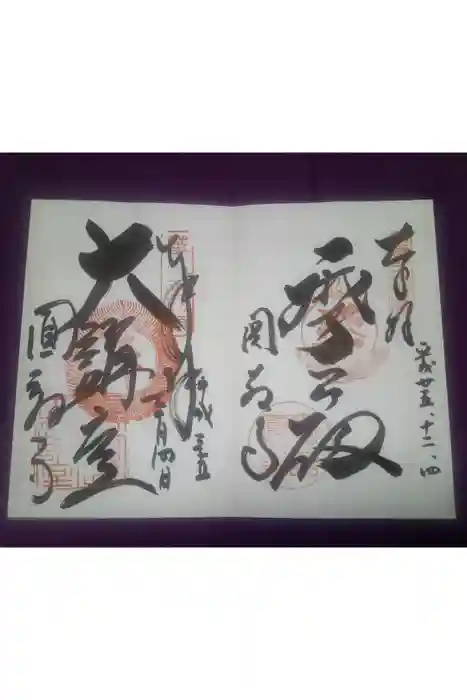 奉拝
平成廿五、十二、四
摩尼殿
圓教寺
奉拝
平成二五
十二月四日
大講堂
圓教寺